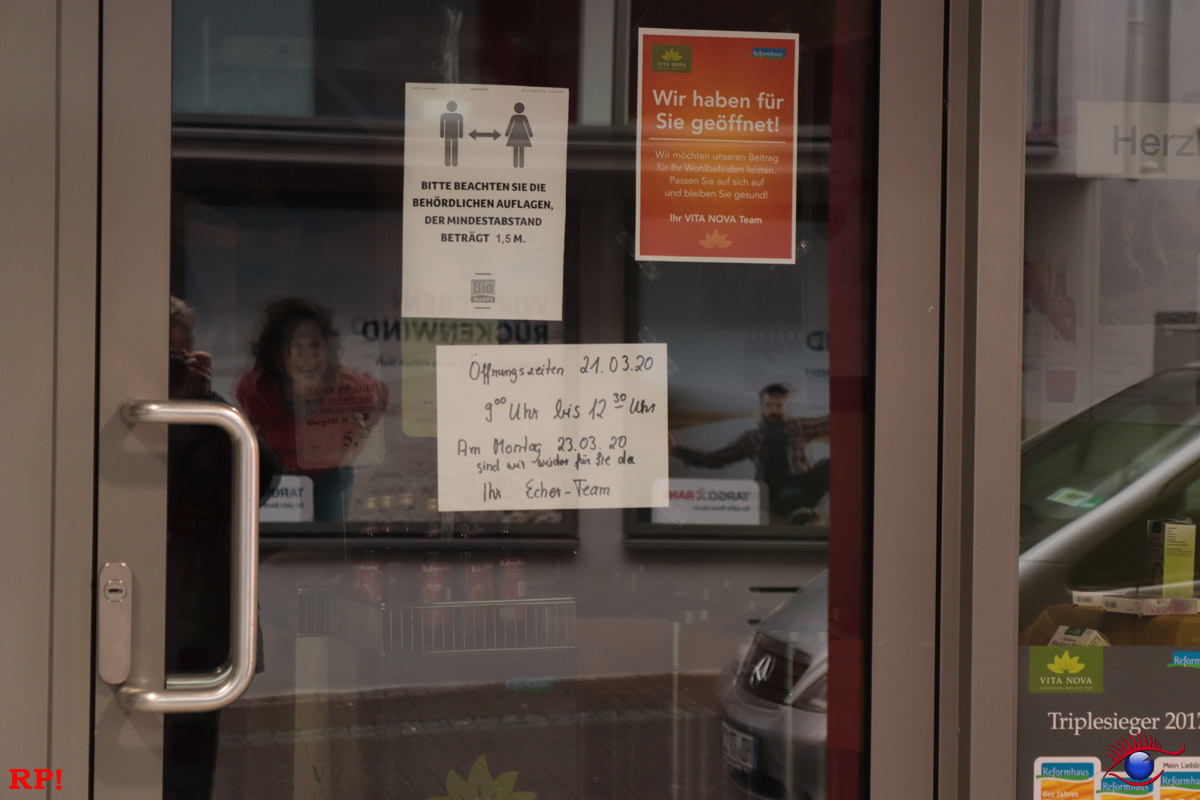 VITA NOVA
Reformhaus
Wir haben für
Sie geöffnet!
Wir möchten unseren Beitrag
für Ihr Wohlbefinden leisten.
Passen Sie auf sich auf
und bleiben Sie gesund!
Ihr VITA NOVA Team
BITTE BEACHTEN SIE DIE
BEHÖRDLICHEN AUFLAGEN,
DER MINDESTABSTAND
BETRÄGT 1,5 M.
Bio
Öffnungszeiten 21.03.20
9⁰⁰ Uhr bis 12³⁰ Uhr
Am Montag 23.03.20
sind wir wieder für Sie da
Ihr Echer-Team
RÜCKENWIND
TARGO BANK
Herz
VITA NOVA
Reform
Triplesieger 2017
Reformhaus
des Jahres
Reformhaus
Mein Liebling
Reformhaus
RP!